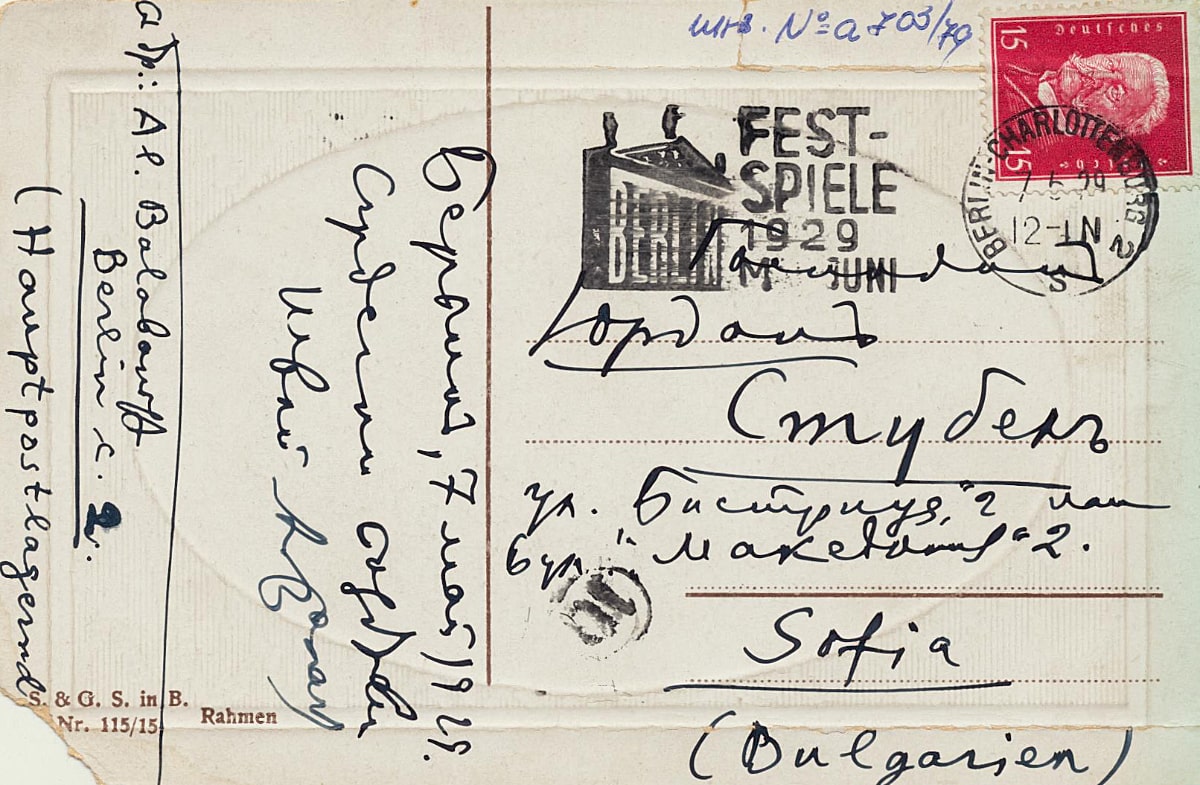 инв. № а 703/79
Deutsches
15
15
Reich
BERLIN-CHARLOTTENBURG 2
7.5.29
12-1N
S
FEST-
SPIELE
1929
MAI JUNI
BERLIN
Господинъ
Йорданъ
Стубелъ
ул. "Бистрица" 2 или
бул. "Македония" 2.
Sofia
(Bulgarien)
Берлинъ, 7 май 1929.
Сърдечни
Твой
Адр.: Al. Balabanoff
Berlin c. 2.
(Hauptpostlagernd
S. & G. S. in B.
Nr. 115/15
Rahmen